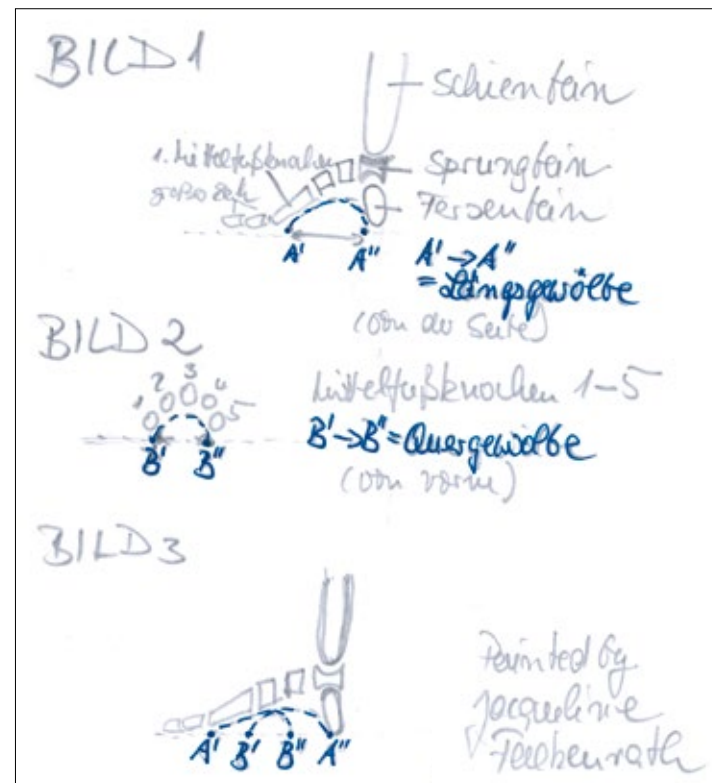 BILD 1
Schienbein
1. Mittelfußknochen
Sprungbein
große Zeh
Fersenbein
A' A''
A' → A''
= Längsgewölbe
(von der Seite)
BILD 2
1 2 3 4 5
Mittelfußknochen 1-5
B' B''
B' → B'' = Quergewölbe
(von vorne)
BILD 3
Painted by
Jacqueline
A' B' B'' A''